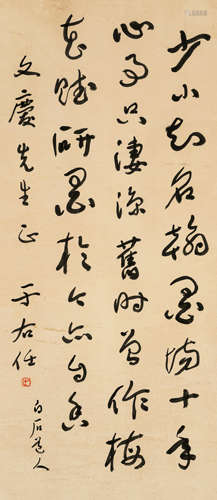 少小知名翰墨場十年
心事只淒涼舊時曾作梅
花賦研墨於今亦自香
文慶先生正 于右任
白石道人